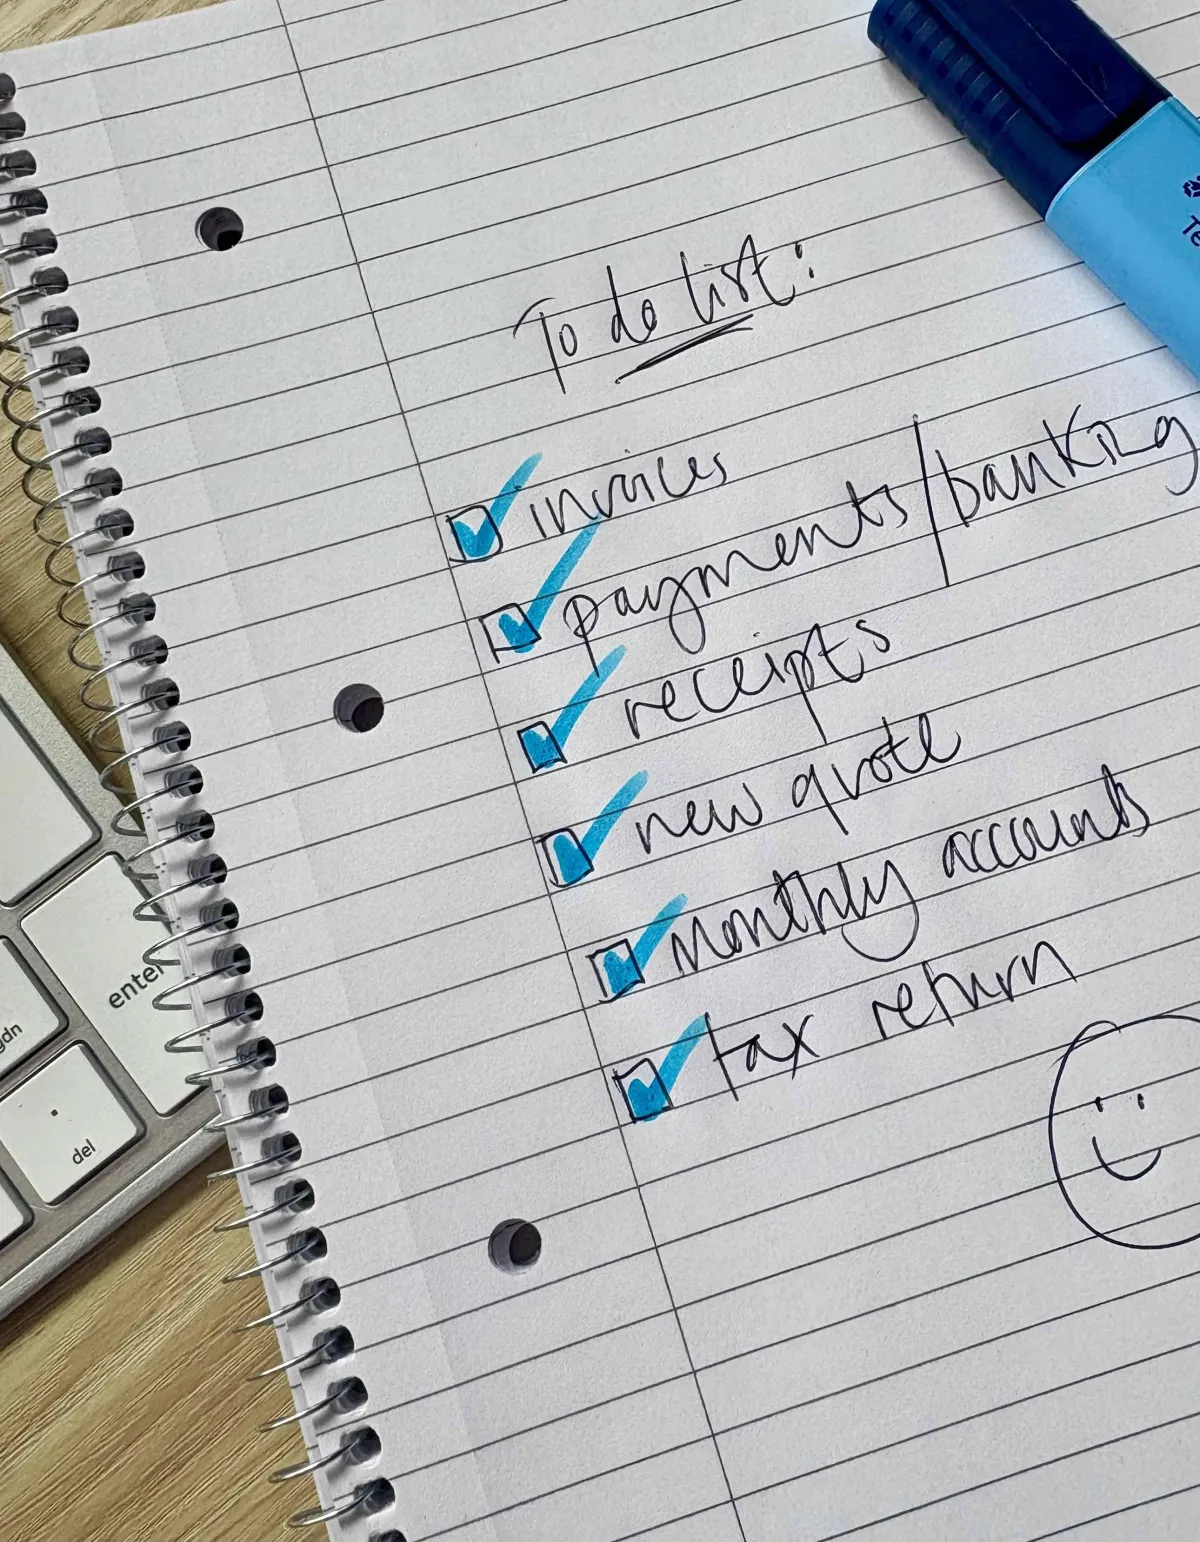 To do list:
invoices
payments/banking
receipts
new quote
monthly accounts
tax return
enter
gdn
del
Te